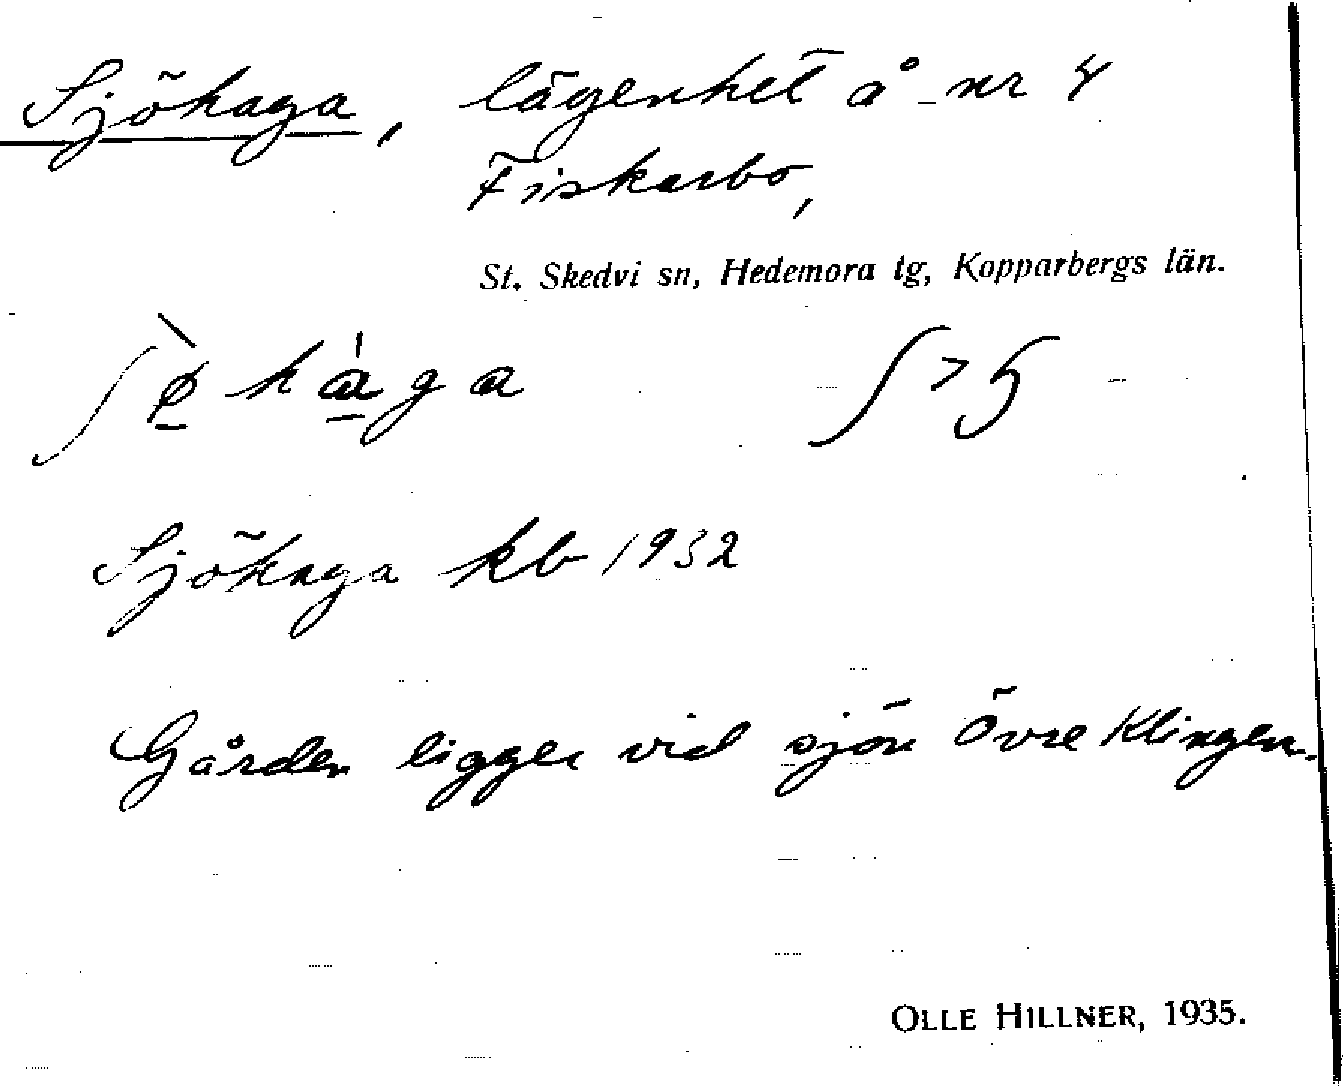 Sjöhaga, lägenhet å nr 4
Fiskarbo,
St. Skedvi sn, Hedemora tg, Kopparbergs län.
ʃø̀hàga ʃ > ʃ
Sjöhaga kb 1932
Gården ligger vid sjön Övre Klingen.
OLLE HILLNER, 1935.